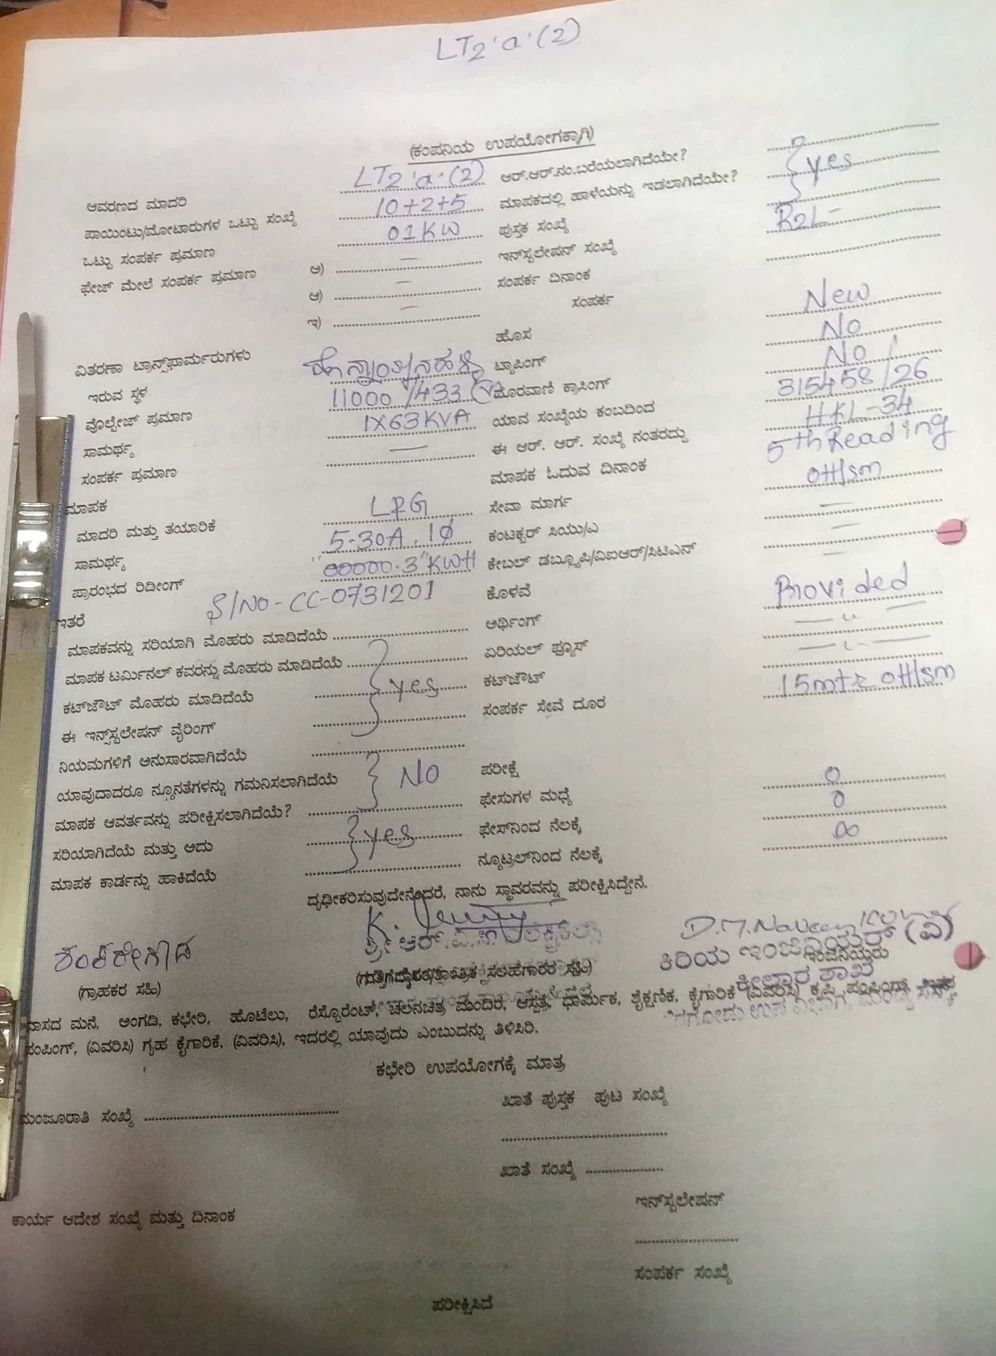 LT2'a'(2)
(ಕಂಪನಿಯ ಉಪಯೋಗಕ್ಕಾಗಿ)
ಆವರಣದ ಮಾದರಿ LT2'a'(2)
ಪಾಯಿಂಟು/ಮೋಟಾರುಗಳ ಒಟ್ಟು ಸಂಖ್ಯೆ 10+2+5
ಒಟ್ಟು ಸಂಪರ್ಕ ಪ್ರಮಾಣ 01KW
ಫೇಜ್ ಮೇಲೆ ಸಂಪರ್ಕ ಪ್ರಮಾಣ ಅ) —
ಆ) —
ಇ) —
ವಿತರಣಾ ಟ್ರಾನ್ಸ್‌ಫಾರ್ಮರುಗಳು
ಇರುವ ಸ್ಥಳ
ವೋಲ್ಟೇಜ್ ಪ್ರಮಾಣ 11000/433 (V)
ಸಾಮರ್ಥ್ಯ 1X63KVA
ಸಂಪರ್ಕ ಪ್ರಮಾಣ —
ಮಾಪಕ
ಮಾದರಿ ಮತ್ತು ತಯಾರಿಕೆ L&G
ಸಾಮರ್ಥ್ಯ 5-30A, 1Ø
ಪ್ರಾರಂಭದ ರಿಡೀಂಗ್ "00000.3" KWH
ಇತರೆ S/NO-CC-0731201
ಮಾಪಕವನ್ನು ಸರಿಯಾಗಿ ಮೊಹರು ಮಾಡಿದೆಯೆ
ಮಾಪಕ ಟರ್ಮಿನಲ್ ಕವರನ್ನು ಮೊಹರು ಮಾಡಿದೆಯೆ
ಕಟ್‌ಔಟ್ ಮೊಹರು ಮಾಡಿದೆಯೆ yes
ಈ ಇನ್ಸ್‌ಸ್ಟಲೇಷನ್ ವೈರಿಂಗ್
ನಿಯಮಗಳಿಗೆ ಅನುಸಾರವಾಗಿದೆಯೆ
ಯಾವುದಾದರೂ ನ್ಯೂನತೆಗಳನ್ನು ಗಮನಿಸಲಾಗಿದೆಯೆ NO
ಮಾಪಕ ಆವರ್ತವನ್ನು ಪರೀಕ್ಷಿಸಲಾಗಿದೆಯೆ?
ಸರಿಯಾಗಿದೆಯೆ ಮತ್ತು ಅದು yes
ಮಾಪಕ ಕಾರ್ಡನ್ನು ಹಾಕಿದೆಯೆ
ಆರ್.ಆರ್.ನಂ.ಬರೆಯಲಾಗಿದೆಯೇ? yes
ಮಾಪಕದಲ್ಲಿ ಹಾಳೆಯನ್ನು ಇಡಲಾಗಿದೆಯೇ?
ಪುಸ್ತಕ ಸಂಖ್ಯೆ R2L-
ಇನ್‌ಸ್ಟಲೇಷನ್ ಸಂಖ್ಯೆ
ಸಂಪರ್ಕ ದಿನಾಂಕ
ಸಂಪರ್ಕ
ಹೊಸ New
ಟ್ಯಾಪಿಂಗ್ No
ದೂರವಾಣಿ ಕ್ರಾಸಿಂಗ್ No
ಯಾವ ಸಂಖ್ಯೆಯ ಕಂಬದಿಂದ 315458/26
ಈ ಆರ್. ಆರ್. ಸಂಖ್ಯೆ ನಂತರದ್ದು HKL-34
ಮಾಪಕ ಓದುವ ದಿನಾಂಕ 5th Reading
ಸೇವಾ ಮಾರ್ಗ OH/sm
ಕಂಟಕ್ಟರ್ ಸಿಯು/ಎ —
ಕೇಬಲ್ ಡಬ್ಲ್ಯೂಪಿ/ವಿಐಆರ್/ಸಿಟಿಎನ್ —
ಕೊಳವೆ —
ಆರ್ಥಿಂಗ್ Provided
ಏರಿಯಲ್ ಫ್ಯೂಸ್ — " —
ಕಟ್‌ಔಟ್ — " —
ಸಂಪರ್ಕ ಸೇವೆ ದೂರ 15mtr OH/sm
ಪರೀಕ್ಷೆ
ಫೇಸುಗಳ ಮಧ್ಯೆ 0
ಫೇಸ್‌ನಿಂದ ನೆಲಕ್ಕೆ 0
ನ್ಯೂಟ್ರಲ್‌ನಿಂದ ನೆಲಕ್ಕೆ ∞
ದೃಢೀಕರಿಸುವುದೇನೆಂದರೆ, ನಾನು ಸ್ಥಾವರವನ್ನು ಪರೀಕ್ಷಿಸಿದ್ದೇನೆ.
ಕಿರಿಯ ಇಂಜಿನಿಯರ್ (ವಿ)
ಇಂಜಿನಿಯರು
(ಗ್ರಾಹಕರ ಸಹಿ)
(ಗುತ್ತಿಗೆದಾರರ/ತಾಂತ್ರಿಕ ಸಲಹೆಗಾರರ ಸಹಿ)
ವಾಸದ ಮನೆ, ಅಂಗಡಿ, ಕಛೇರಿ, ಹೊಟೆಲು, ರೆಸ್ಟೊರೆಂಟ್, ಚಲನಚಿತ್ರ ಮಂದಿರ, ಆಸ್ಪತ್ರೆ, ಧಾರ್ಮಿಕ, ಶೈಕ್ಷಣಿಕ, ಕೈಗಾರಿಕೆ (ವಿವರಿಸಿ) ಕೃಷಿ ಪಂಪಿಂಗ್
ಪಂಪಿಂಗ್, (ವಿವರಿಸಿ) ಗೃಹ ಕೈಗಾರಿಕೆ, (ವಿವರಿಸಿ), ಇದರಲ್ಲಿ ಯಾವುದು ಎಂಬುದನ್ನು ತಿಳಿಸಿರಿ.
ಕಛೇರಿ ಉಪಯೋಗಕ್ಕೆ ಮಾತ್ರ
ಮಂಜೂರಾತಿ ಸಂಖ್ಯೆ
ಖಾತೆ ಪುಸ್ತಕ ಪುಟ ಸಂಖ್ಯೆ
ಖಾತೆ ಸಂಖ್ಯೆ
ಇನ್‌ಸ್ಟಲೇಷನ್
ಕಾರ್ಯ ಆದೇಶ ಸಂಖ್ಯೆ ಮತ್ತು ದಿನಾಂಕ
ಸಂಪರ್ಕ ಸಂಖ್ಯೆ
ಪರೀಕ್ಷಿಸಿದೆ